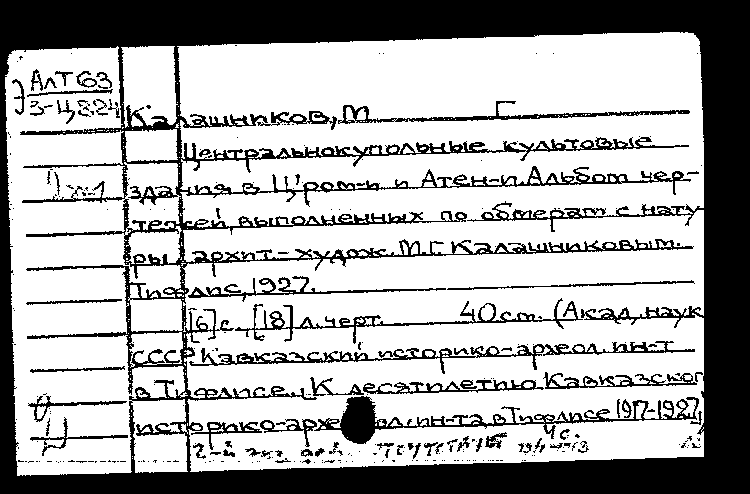 АлТ 63
3-Ц,824
Калашников, М Г
Центральнокупольные культовые
здания в Ц'ром-и и Атен-и. Альбом чер-
тежей, выполненных по обмерам с нату
ры архит.-худож. М.Г. Калашниковым.
Тифлис, 1927.
[6] с., [18] л. черт. 40 cm. (Акад. наук
СССР Кавказский историко-археол. ин-т
в Тифлисе., К десятилетию Кавказског
историко-археол. ин-та в Тифлисе 1917-1927,
2-й экз.